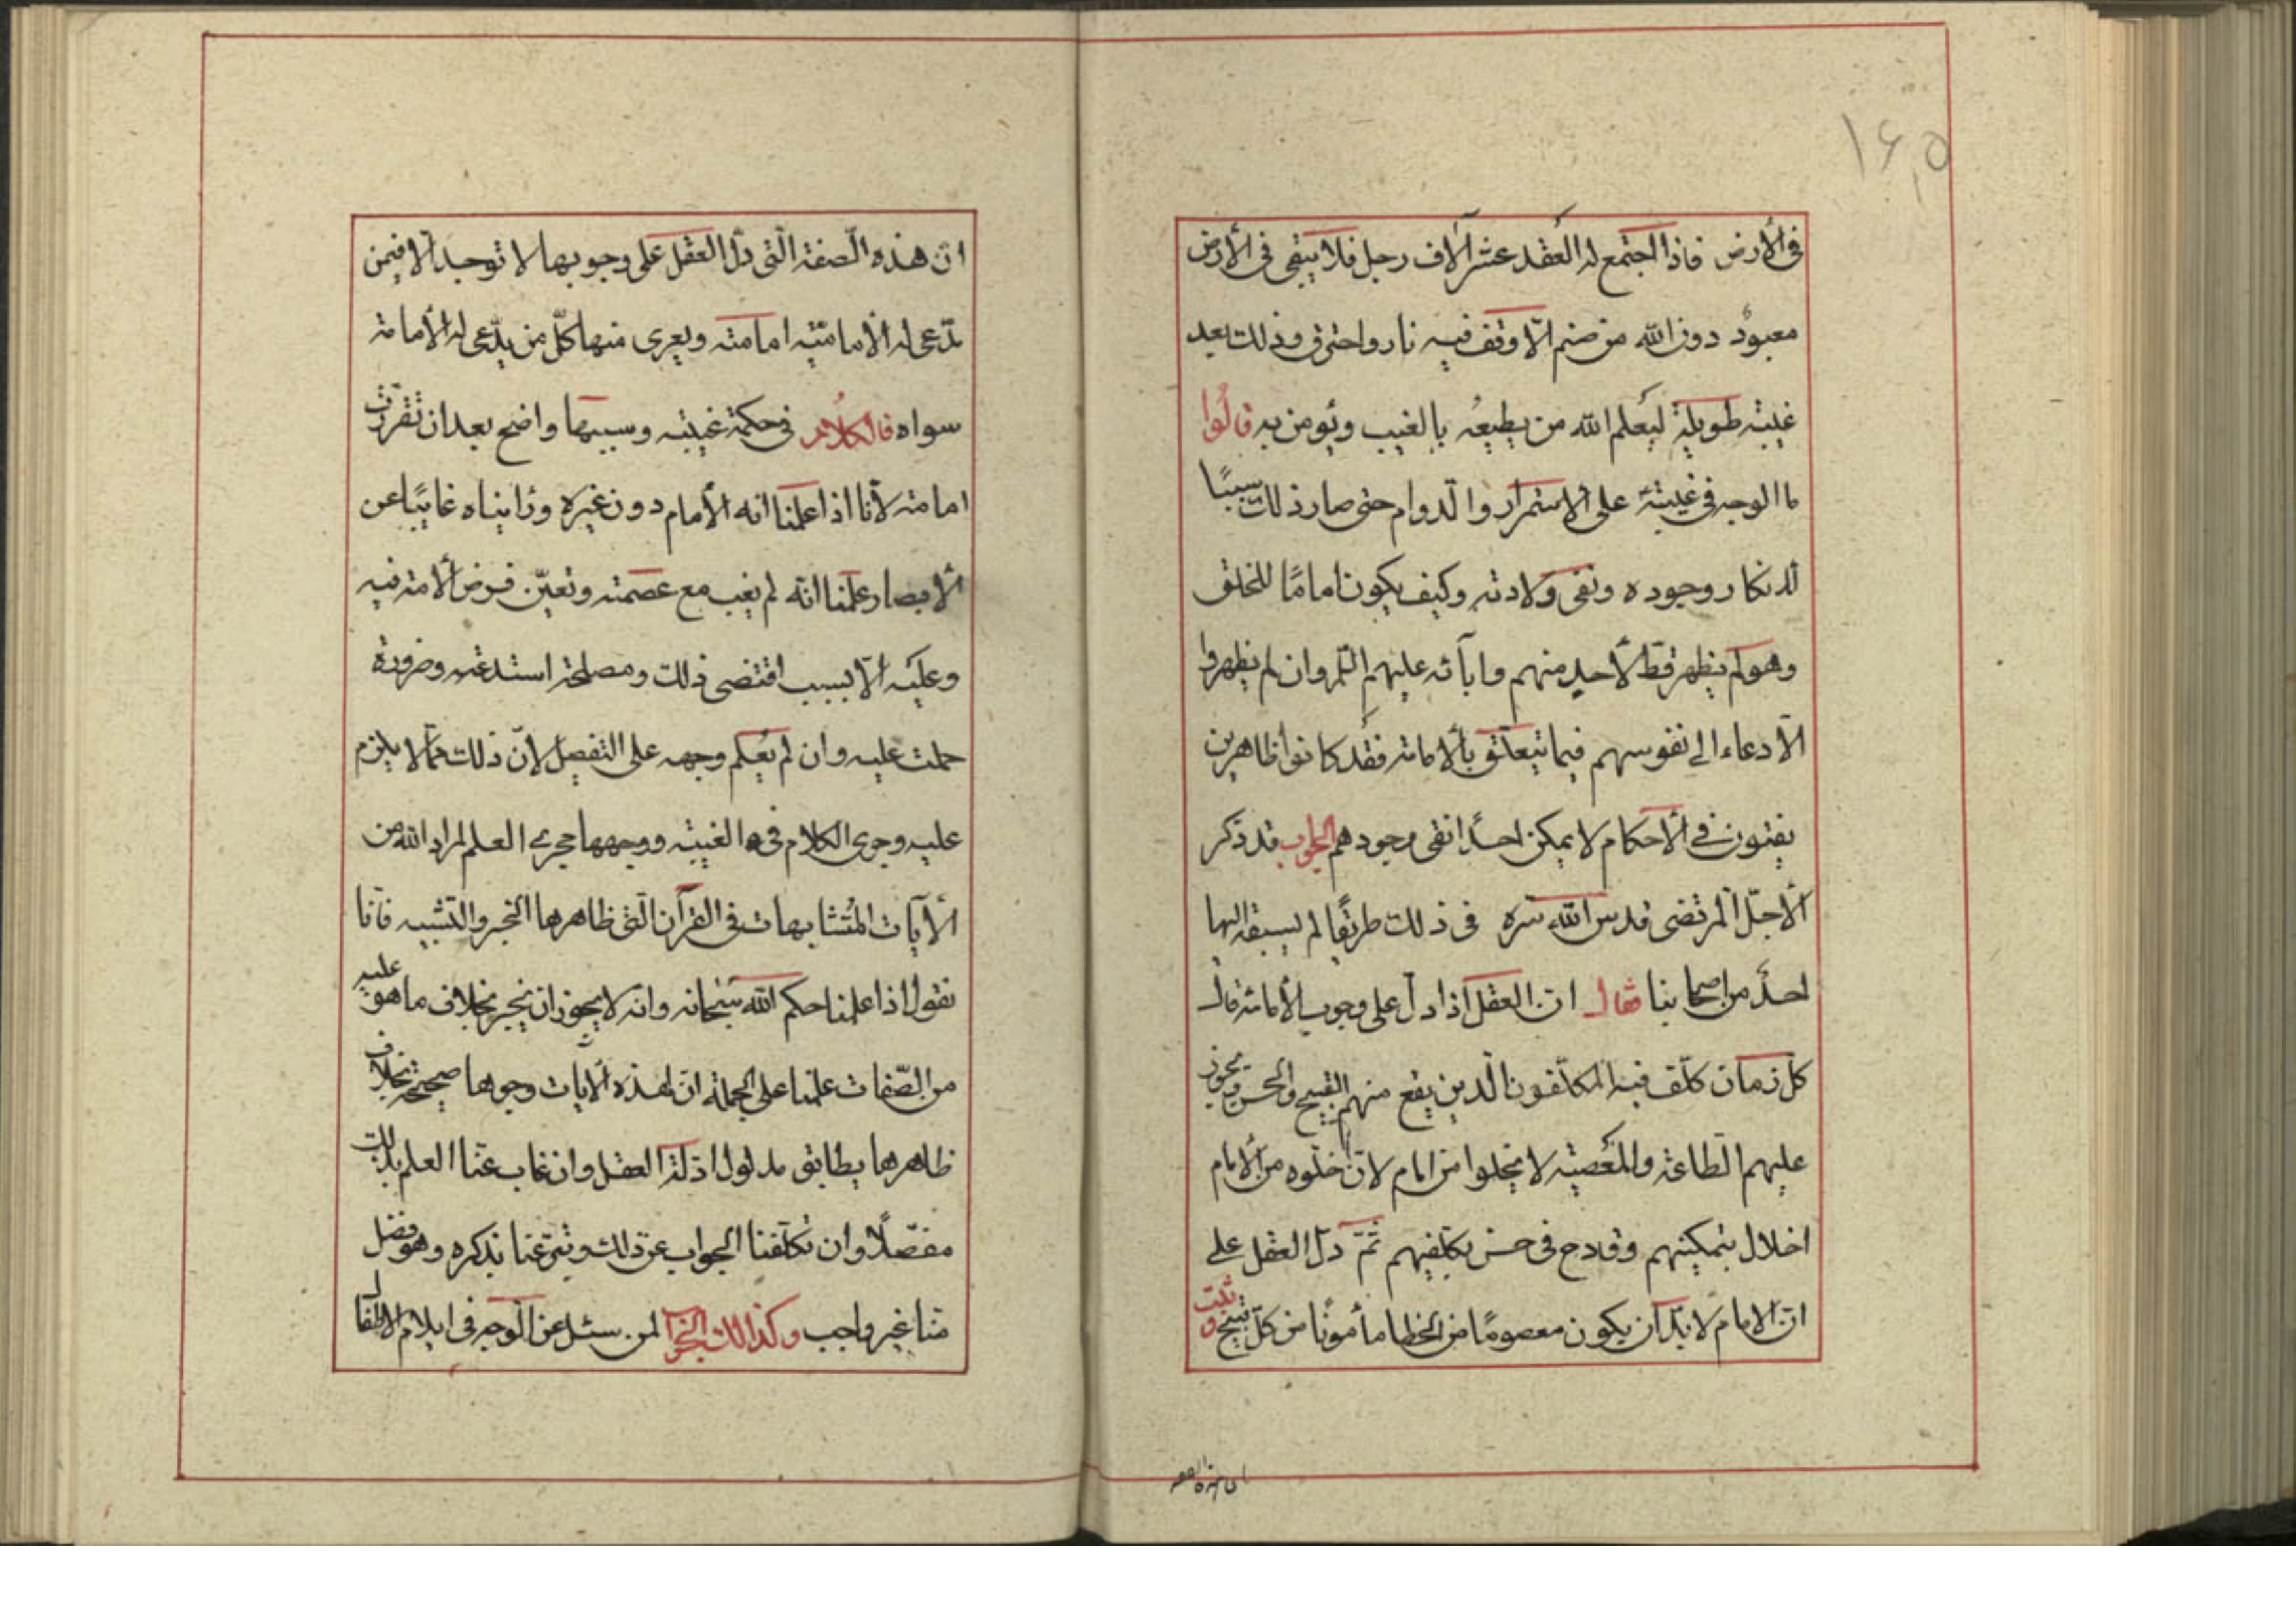 ۱۶۵
في الأرض فاذا اجتمع له العقد عشر آلاف رجل فلا يبقى في الأرض
معبود دون الله من صنم الّا وقف فيه نار واحترق وذلك بعد
غيبة طويلة ليعلم الله من يطيعه بالغيب ويؤمن به قالوا
ما الوجه في غيبته على الاستمرار والدوام حتى صار ذلك سببًا
لانكار وجوده ونفي ولادته وكيف يكون امامًا للخلق
وهو لم يظهر قطّ لأحد منهم وآبائه عليهم السلم وان لم يظهروا
الادعاء الى نفوسهم فيما يتعلّق بالأمامة فقد كانوا ظاهرين
يفتون في الأحكام لا يمكن احدًا نفى وجودهم الجواب قد ذكر
الأجلّ المرتضى قدس الله سره في ذلك طريقًا لم يسبقه اليها
احدٌ من اصحابنا فقال انّ العقل اذا دلّ على وجوب الأمامة فان
كل زمان كلّف فيه المكلّفون الّذين يقع منهم القبيح والحسن ويجوز
عليهم الطاعة والمعصية لا يخلوا من امام لانّ خلوه من الأمام
اخلال بتمكينهم وقادح في حسن تكليفهم ثمّ دلّ العقل على
انّ الامام لا بدّ ان يكون معصومًا من الخطا مأمونًا من كلّ قبيح وثبت
ان هذه الصفة
انّ هذه الصفة الّتي دلّ العقل على وجوبها لا توجد الّا فيمن
تدّعى له الأماميّة امامته ويعرى منها كلّ من يدّعى له الأمامة
سواه فالكلام في حكمة غيبته وسببها واضح بعد ان تقررت
امامته لأنا اذا علمنا انه الأمام دون غيره ورايناه غايبًا عن
الأبصار علمنا انّه لم يغب مع عصمته وتعيّن فرض الأمة فيه
وعليه الّا بسبب اقتضى ذلك ومصلحة استدعته وضرورة
حملت عليه وان لم يعلم وجهه على التفصيل لأنّ ذلك ممّا لا يلزم
عليه وجرى الكلام في الغيبة ووجهها مجرى العلم لمراد الله من
الأيات المتشابهات في القرآن الّتي ظاهرها الجبر والتشبيه فانا
نقول اذا علمنا حكم الله سبحانه وانه لا يجوز ان يخبر بخلاف ما هو عليه
من الصّفات علمنا على الجملة انّ لهذه الأيات وجوها صحيحة بخلاف
ظاهرها يطابق مدلول ادلّة العقل وان غاب عنّا العلم بذلك
مفصّلًا وان تكلّفنا الجواب عن ذلك وتبرّعنا بذكره وهو فضل
منا غير واجب وكذلك الجوا لمن سئل عن الوجه في ايلام الاطفال